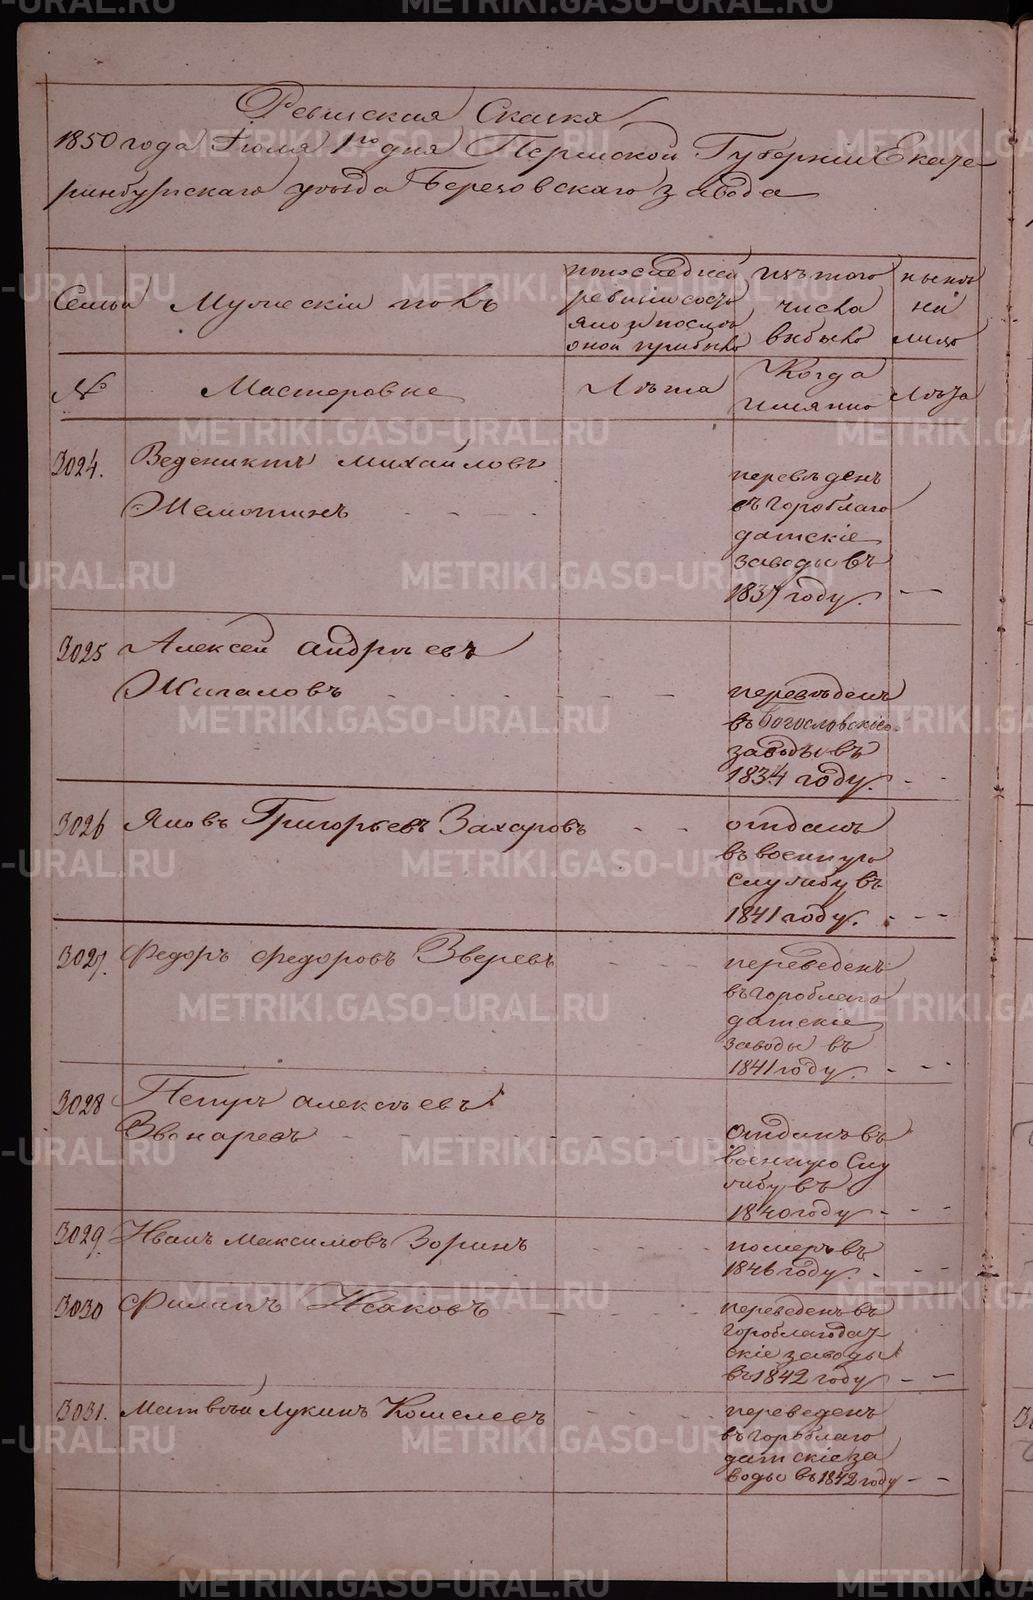 Ревизская Сказка
1850 года Iюля 1го дня Пермской Губернiи Екате
ринбургскаго уѣзда Березовскаго завода
Семьи
Мужескiй полъ
по последней
ревизiи состо
яло и послѣ
оной прибыло
изъ того
числа
выбыло
нынѣ
на
лицо
№
Мастеровые
Лѣта
Когда
имянно
Лѣта
3024.
Веденихтъ Михайловъ
Жемотинъ
переведенъ
въ гороблаго
датскiе
заводы въ
1837 году.
3025
Алексей Андрѣевъ
Жигаловъ
переведенъ
въ Богословскiе
заводы въ
1834 году.
3026
Яковъ Григорьевъ Захаровъ
отданъ
въ военную
службу въ
1841 году.
3027.
Федоръ Федоровъ Зверевъ
переведенъ
въ гороблаго
датскiе
заводы въ
1841 году.
3028
Петръ Алексѣевъ
Звонаревъ
Отданъ въ
военную Слу
жбу въ
1840 году
3029.
Иванъ Максимовъ Зоринъ
померъ въ
1846 году.
3030
Филипъ Исаковъ
переведенъ въ
гороблагодат
скiе заводы
въ 1842 году
3031.
Матвѣй Лукинъ Кошелевъ
переведенъ
въ гороблаго
датскiе за
воды въ 1842 году
METRIKI.GASO-URAL.RU